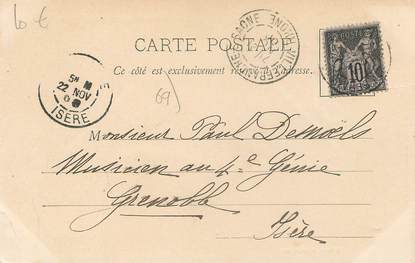 10 €
CARTE POSTALE
Ce côté est exclusivement réservé à l'adresse.
POSTE
10
22 NOV
ISÈRE
69)
Monsieur Paul Desnoëls
Musicien au 4e Génie
Grenoble
Isère